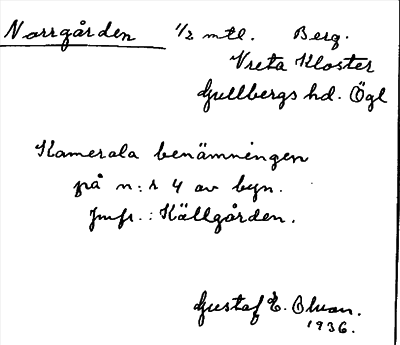 Norrgården 1/2 mtl. Berg.
Vreta Kloster
Gullbergs hd. Ögl
Kamerala benämningen
på n:r 4 av byn.
Jmfr.: Källgården.
Gustaf E. Olsson.
1936.